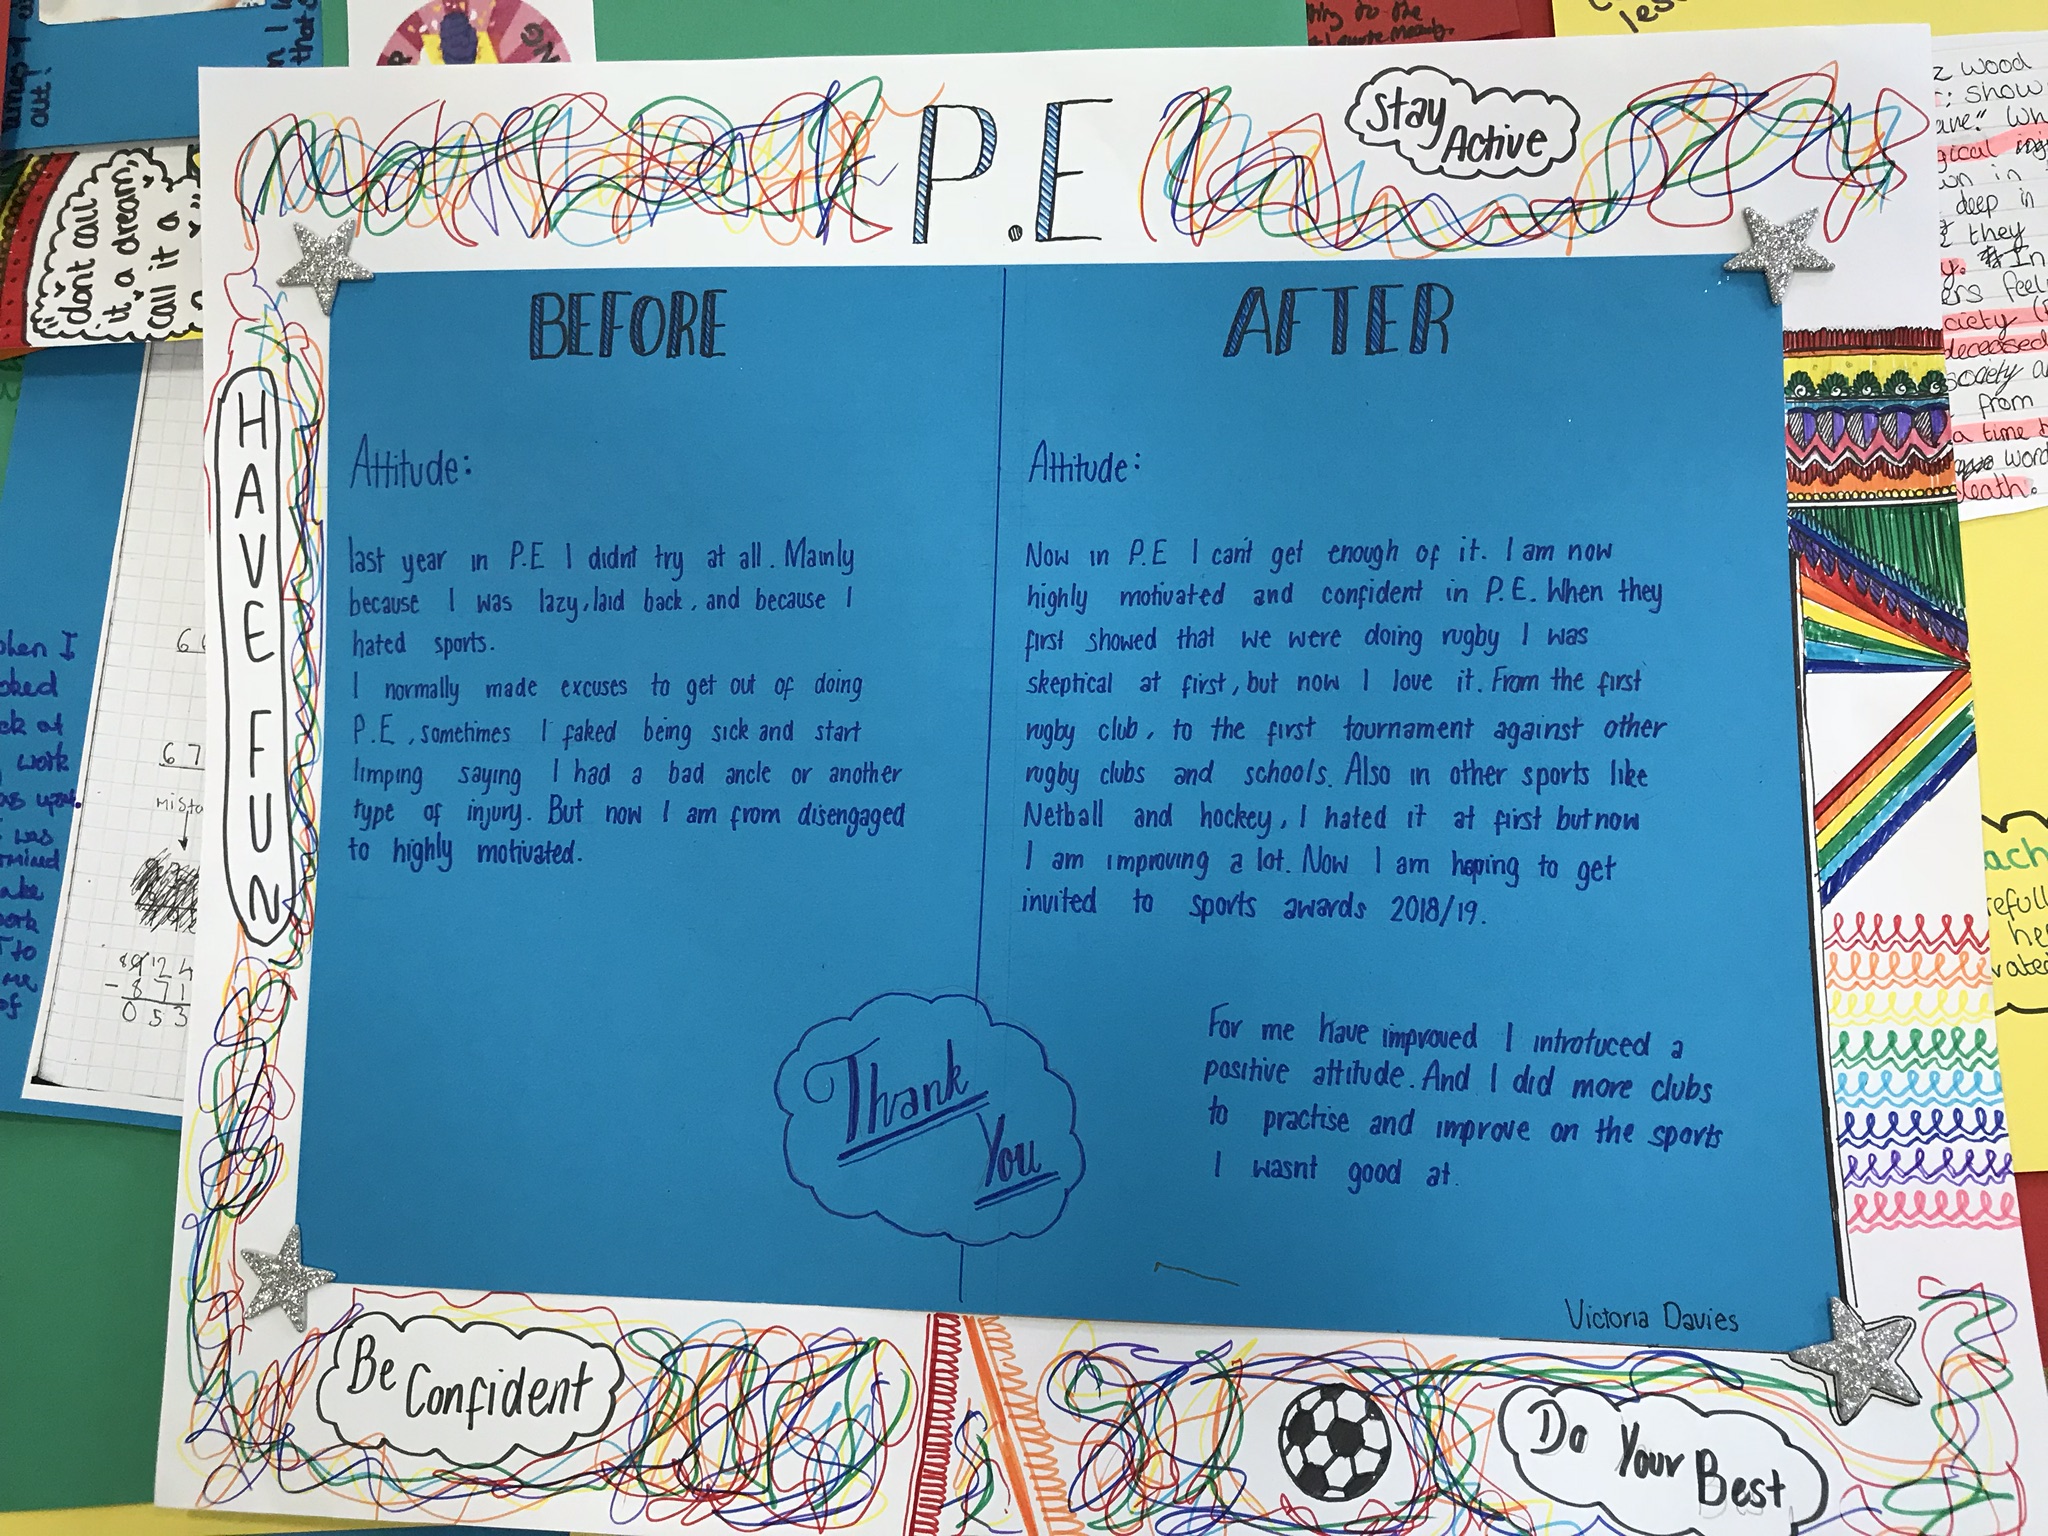 P.E
Stay
Active
HAVE FUN
BEFORE
Attitude:
last year in P.E I didn't try at all. Mainly
because I was lazy, laid back, and because I
hated sports.
I normally made excuses to get out of doing
P.E, sometimes I faked being sick and start
limping saying I had a bad ancle or another
type of injury. But now I am from disengaged
to highly motivated.
AFTER
Attitude:
Now in P.E I can't get enough of it. I am now
highly motivated and confident in P.E. When they
first showed that we were doing rugby I was
skeptical at first, but now I love it. From the first
rugby club, to the first tournament against other
rugby clubs and schools. Also in other sports like
Netball and hockey, I hated it at first but now
I am improving a lot. Now I am hoping to get
invited to sports awards 2018/19.
For me have improved I introtuced a
positive attitude. And I did more clubs
to practise and improve on the sports
I wasnt good at.
Thank
You
Victoria Davies
Be
Confident
Do Your Best
don't call
it a dream
call it a
out!
when I
work
was
to
of
67
89124
- 871
053
wood
show
in
deep in
they
In
deceased
from
a time
death.